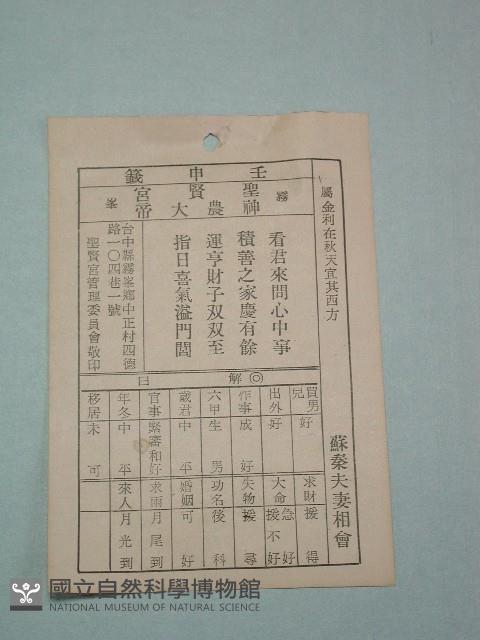 壬申籤
霧峯
聖賢宮
神農大帝
屬金利在秋天宜其西方
看君來問心中事
積善之家慶有餘
運亨財子双双至
指日喜氣溢門閭
台中縣霧峯鄉中正村四德
路一〇四巷一號
聖賢宮管理委員會敬印
解曰
蘇秦夫妻相會
買男兒 好
出外 好
作事 成好
六甲 生男
歲君 中平
官事 緊審和好
年冬 中平
移居 未可
求財 援得
大命 急好 援不好
失物 援尋
功名 後科
婚姻 可好
求雨 月尾到
來人 月光到
國立自然科學博物館
NATIONAL MUSEUM OF NATURAL SCIENCE